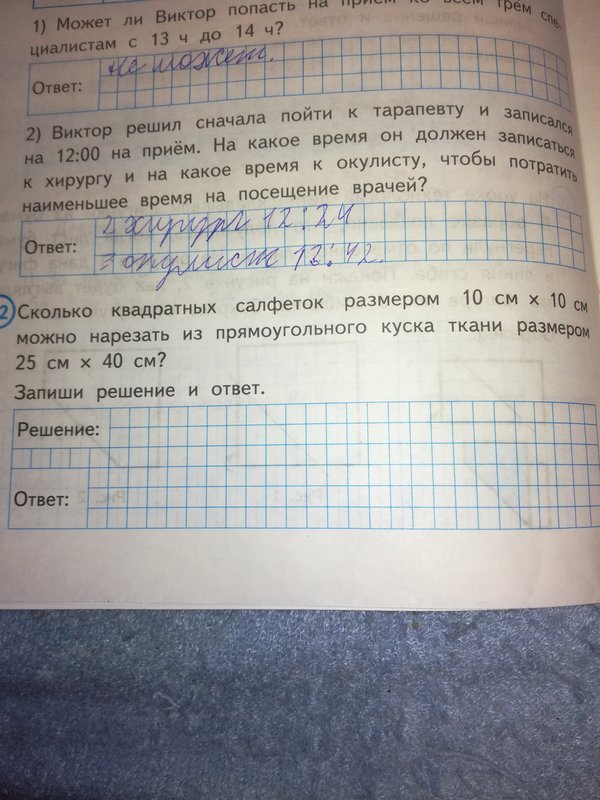 1) Может ли Виктор попасть на приём ко всем трём спе-
циалистам с 13 ч до 14 ч?
Ответ: не может.
2) Виктор решил сначала пойти к тарапевту и записался
на 12:00 на приём. На какое время он должен записаться
к хирургу и на какое время к окулисту, чтобы потратить
наименьшее время на посещение врачей?
2 хирург 12:24
Ответ:
3 окулист 12:42.
2 Сколько квадратных салфеток размером 10 см × 10 см
можно нарезать из прямоугольного куска ткани размером
25 см × 40 см?
Запиши решение и ответ.
Решение:
Ответ: